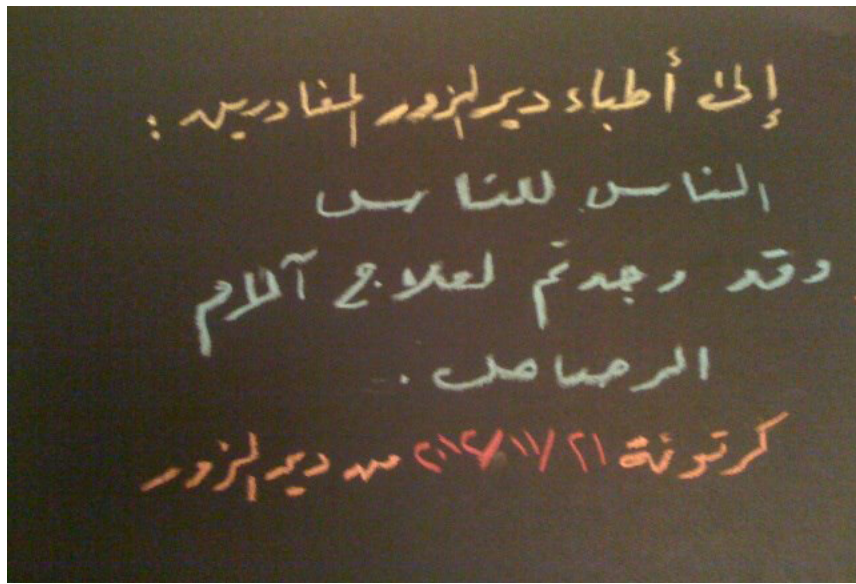 إلى أطباء دير الزور المغادرين :
الناس للناس
وقد وجدتم لعلاج آلام
الرصاص .
كرتونة ٢١/١١/٢٠١٢ من دير الزور